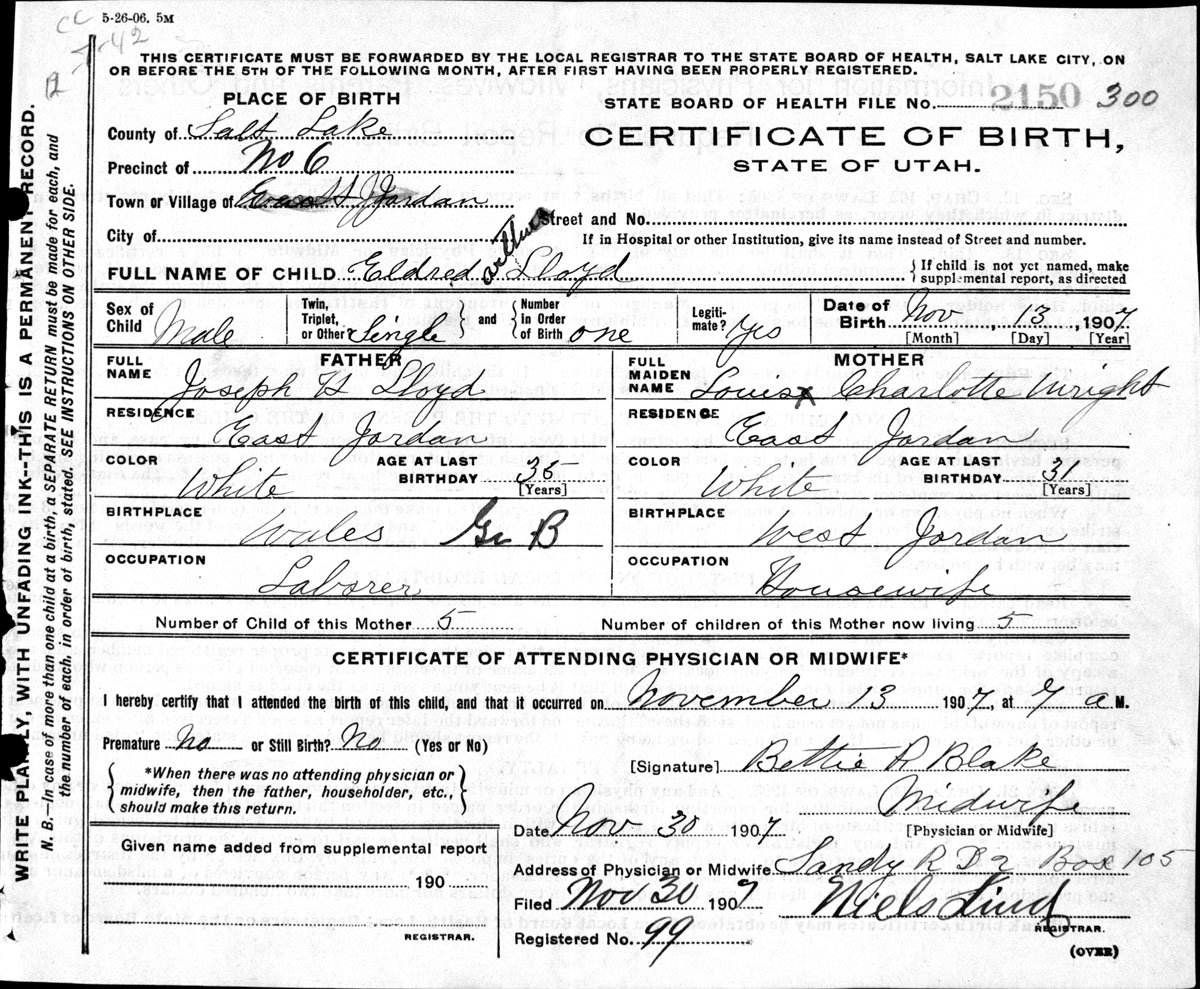 5-26-06. 5M
THIS CERTIFICATE MUST BE FORWARDED BY THE LOCAL REGISTRAR TO THE STATE BOARD OF HEALTH, SALT LAKE CITY, ON
OR BEFORE THE 5TH OF THE FOLLOWING MONTH, AFTER FIRST HAVING BEEN PROPERLY REGISTERED.
WRITE PLAINLY, WITH UNFADING INK--THIS IS A PERMANENT RECORD.
N. B.--In case of more than one child at a birth, a SEPARATE RETURN must be made for each, and
the number of each, in order of birth, stated. SEE INSTRUCTIONS ON OTHER SIDE.
PLACE OF BIRTH
County of Salt Lake
Precinct of No 6
Town or Village of East Jordan
City of
STATE BOARD OF HEALTH FILE NO. 2150 300
CERTIFICATE OF BIRTH,
STATE OF UTAH.
Street and No.
If in Hospital or other Institution, give its name instead of Street and number.
FULL NAME OF CHILD Eldred Arthur Lloyd
If child is not yet named, make
supplemental report, as directed
Sex of Child Male
Twin, Triplet, or Other Single
and
Number in Order of Birth one
Legitimate? yes
Date of Birth Nov 13, 1907
[Month] [Day] [Year]
FATHER
FULL NAME Joseph H Lloyd
RESIDENCE East Jordan
COLOR White
AGE AT LAST BIRTHDAY 35
[Years]
BIRTHPLACE Wales Gr B
OCCUPATION Laborer
MOTHER
FULL MAIDEN NAME Louisa Charlotte Wright
RESIDENCE East Jordan
COLOR White
AGE AT LAST BIRTHDAY 31
[Years]
BIRTHPLACE West Jordan
OCCUPATION Housewife
Number of Child of this Mother 5
Number of children of this Mother now living 5
CERTIFICATE OF ATTENDING PHYSICIAN OR MIDWIFE*
I hereby certify that I attended the birth of this child, and that it occurred on November 13 1907, at 7 a M.
Premature No or Still Birth? No (Yes or No)
*When there was no attending physician or
midwife, then the father, householder, etc.,
should make this return.
Given name added from supplemental report
190
REGISTRAR.
[Signature] Bettie R Blake
Midwif
[Physician or Midwife]
Date Nov 30 1907
Address of Physician or Midwife Sandy R D 2 Box 105
Filed Nov 30 1907 Niels Lind
REGISTRAR.
Registered No. 99
(OVER)